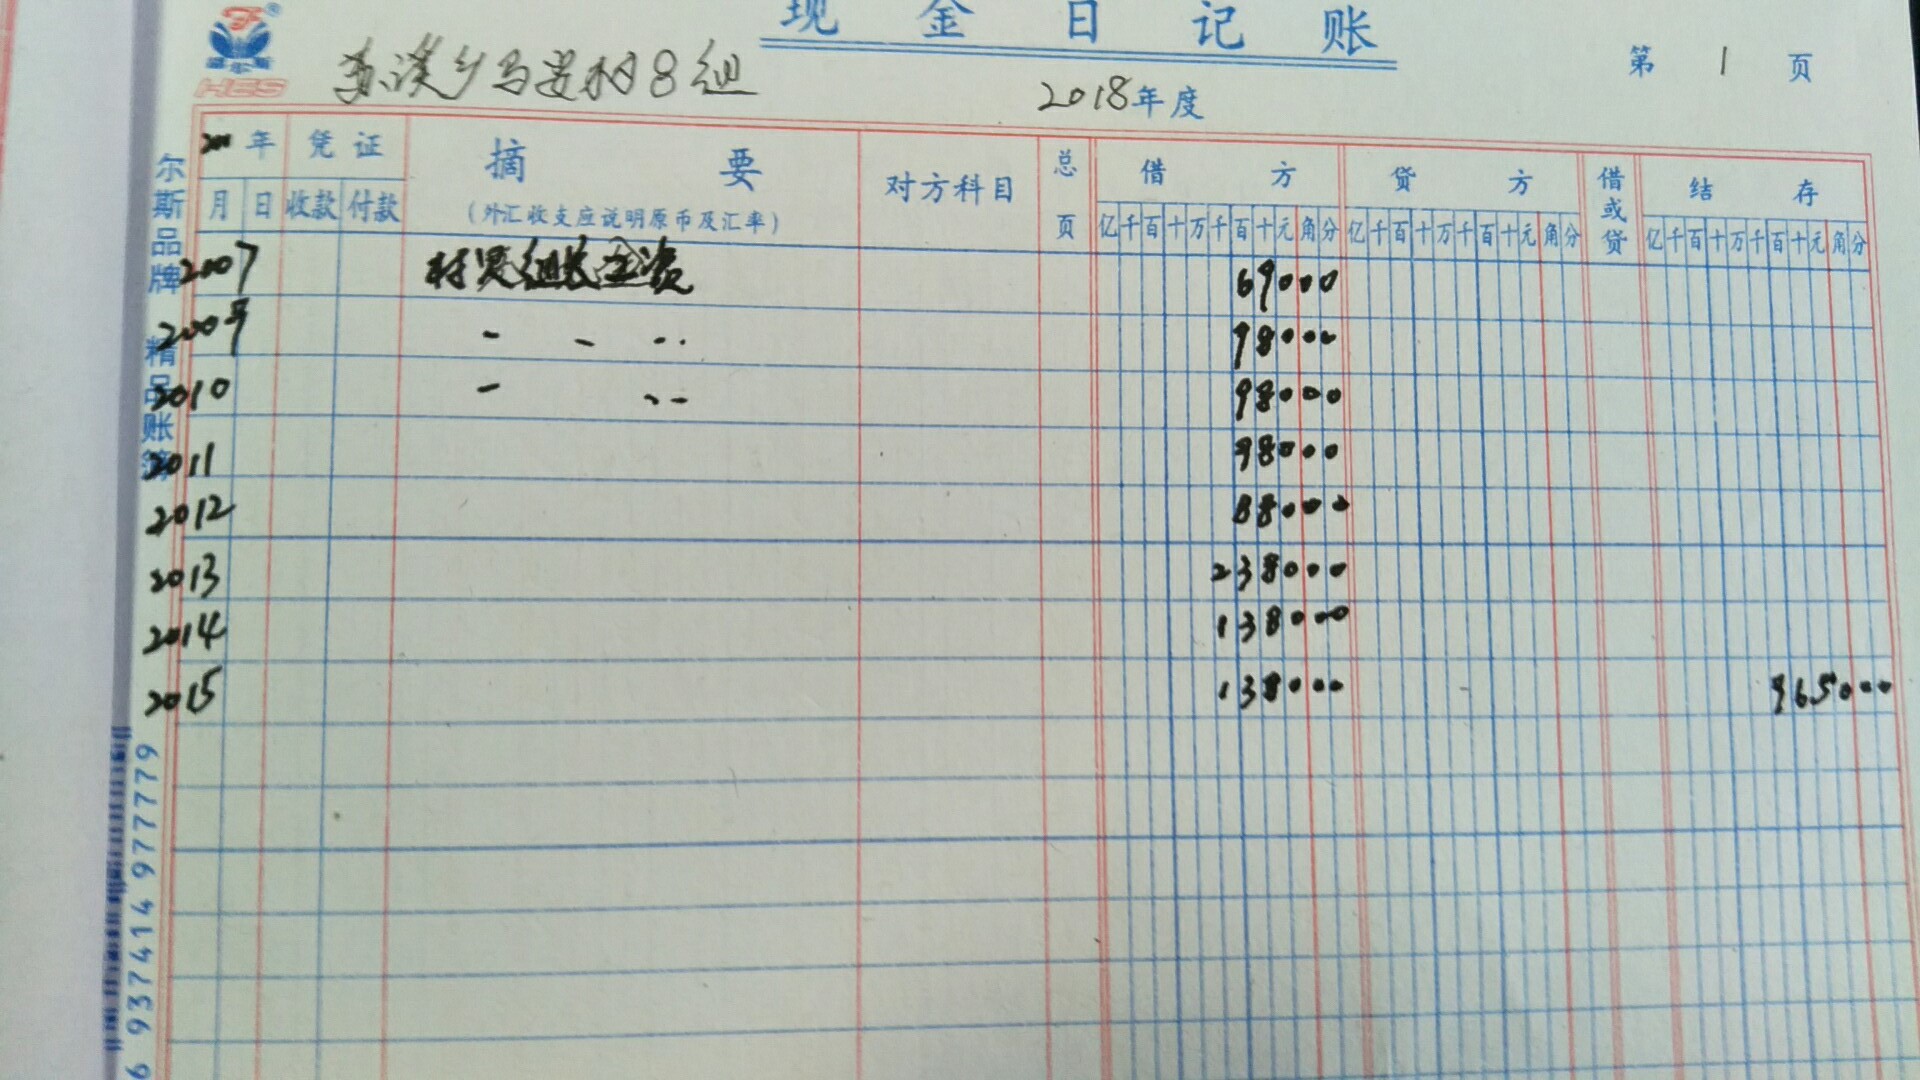 现金日记账
HES
苏溪乡马岩村8组
2018年度
第 1 页
年 凭证 摘要 对方科目 总页 借方 贷方 借或贷 结存
月 日 收款 付款 （外汇收支应说明原币及汇率） 亿千百十万千百十元角分 亿千百十万千百十元角分 亿千百十万千百十元角分
2007 组长工资 69000
2009 98000
2010 98000
2011 98000
2012 88000
2013 238000
2014 138000
2015 138000 965000
尔斯品牌 精品账簿
6 937414 977779